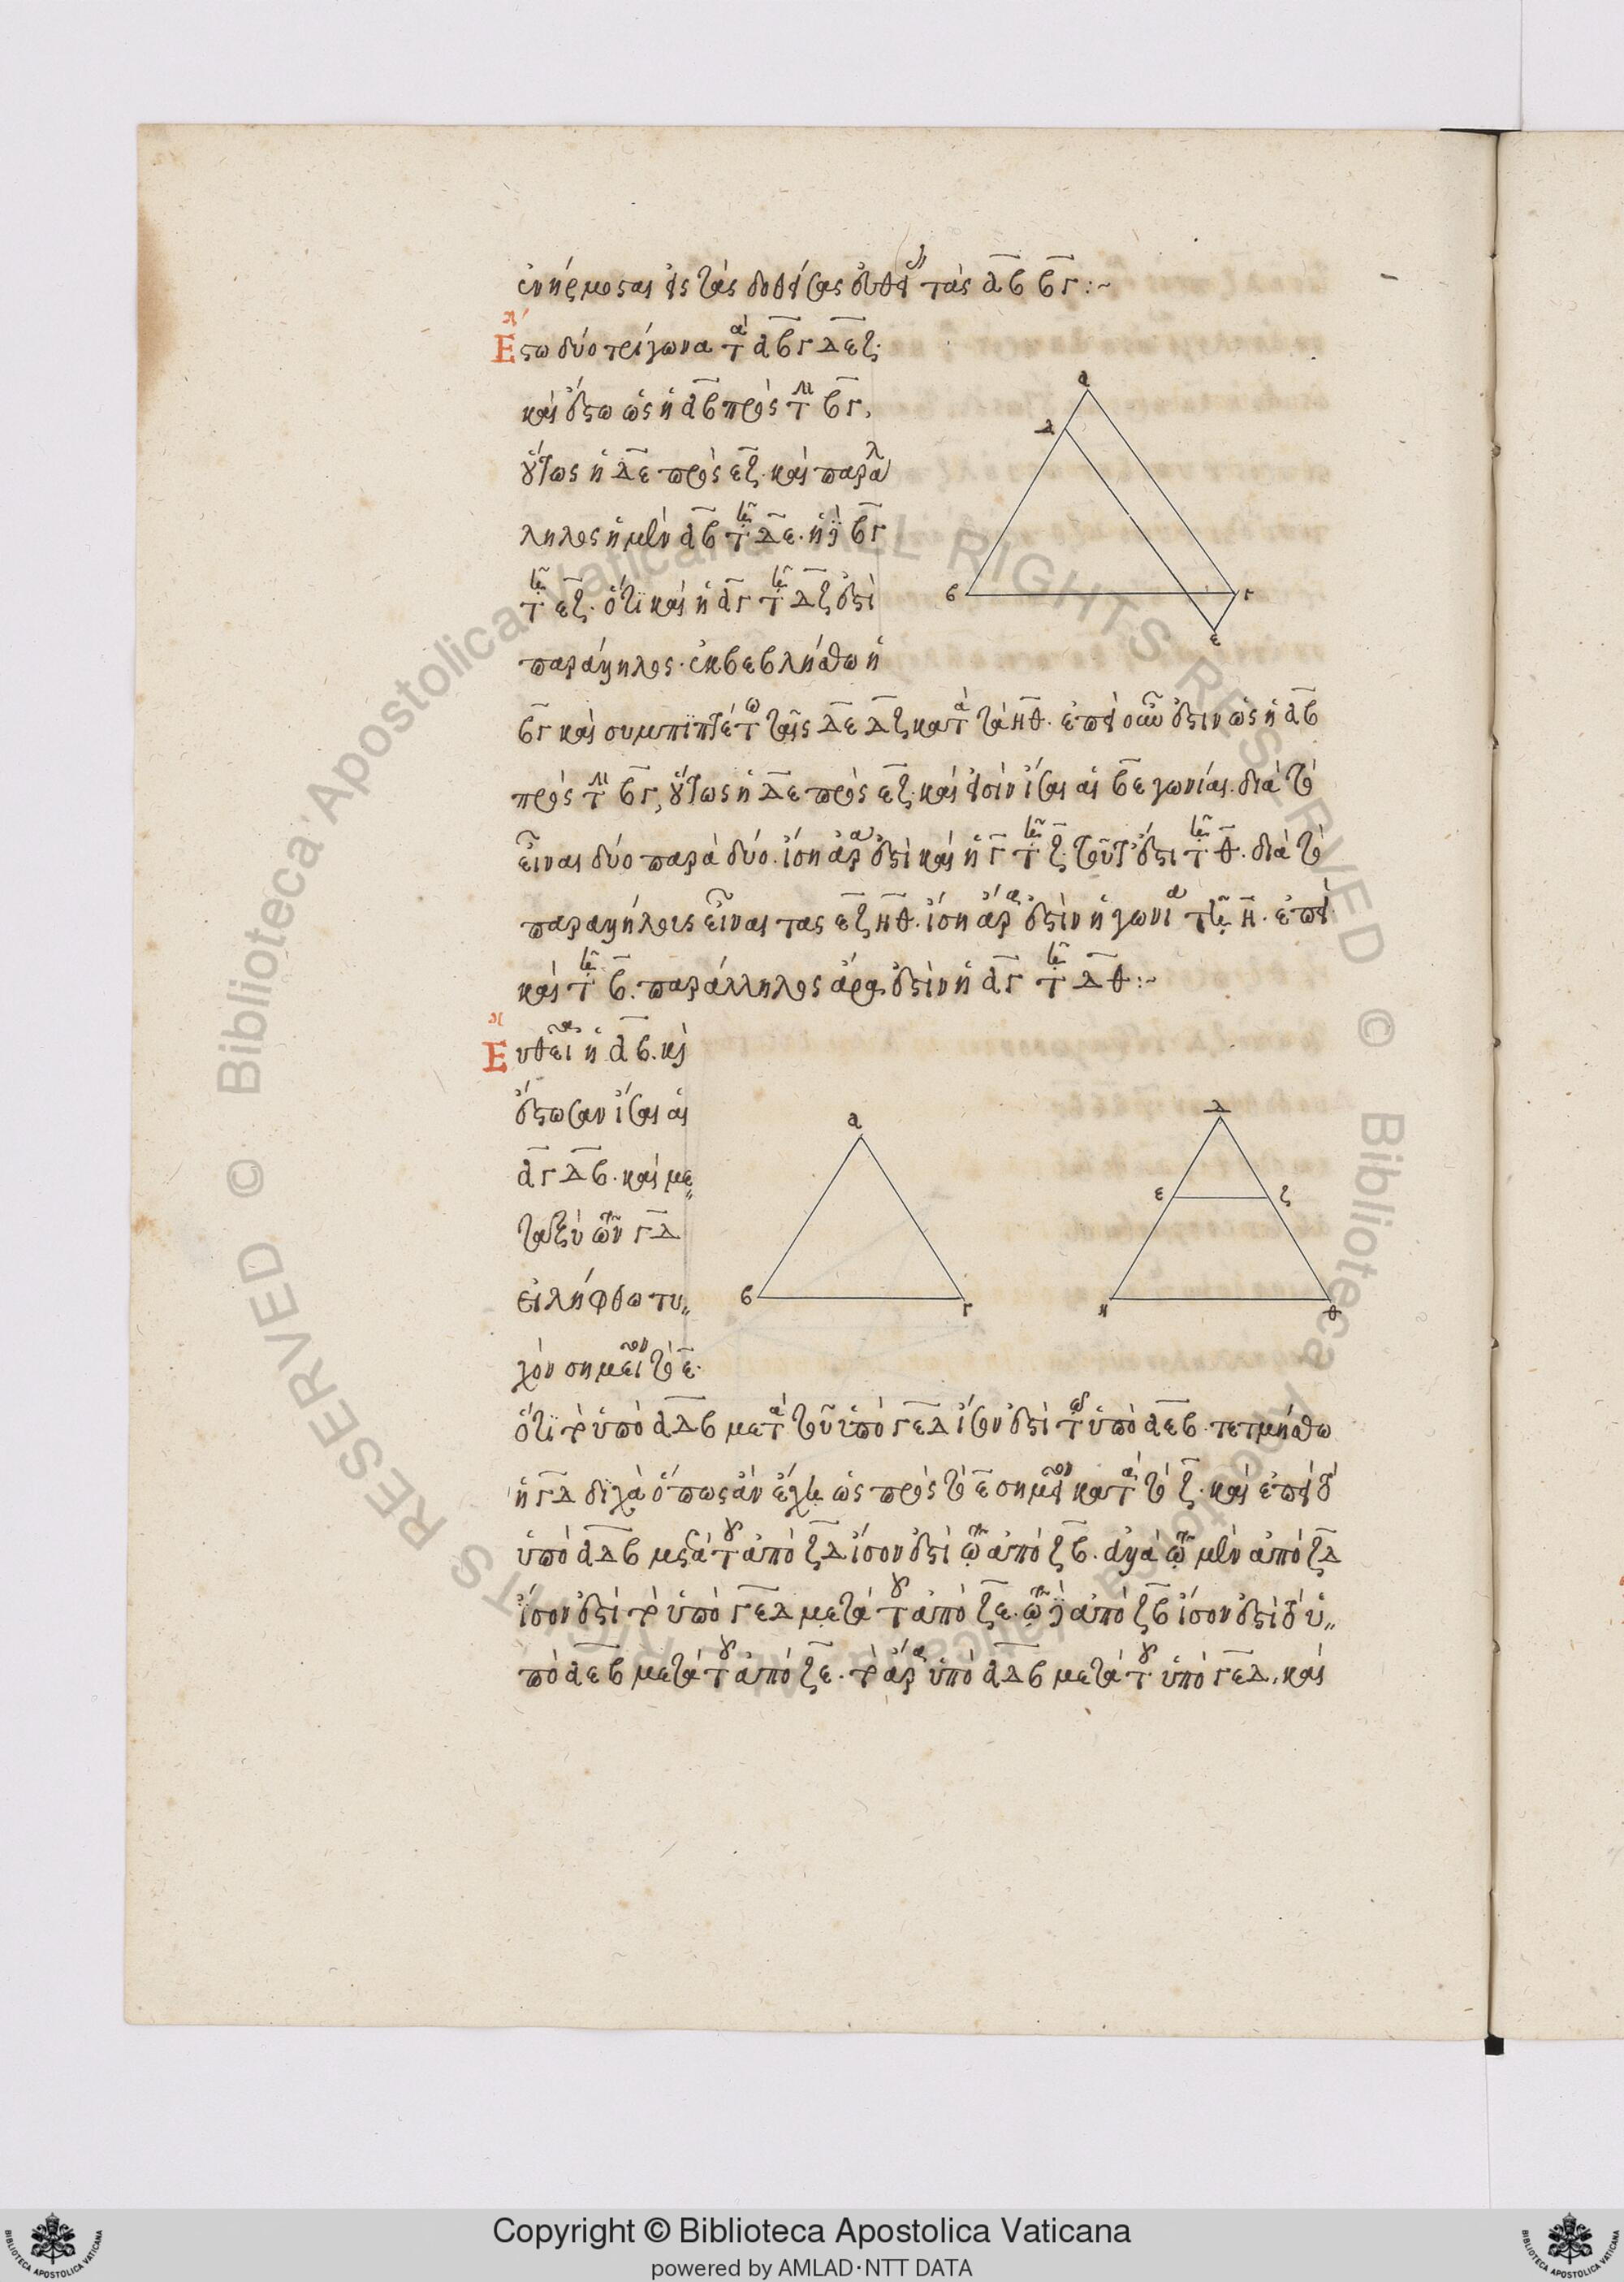 ἐνήρμοσαι εἰς τὰς δοθείσας εὐθεί τὰς ΑΒ ΒΓ :~
λ´
Ἔστω δύο τρίγωνα τὰ ΑΒΓ ΔΕΖ·
καὶ ἔστω ὡς ἡ ΑΒ πρὸς τὴν ΒΓ,
οὕτως ἡ ΔΕ πρὸς ΕΖ· καὶ παράλ
ληλος ἡ μὲν ΑΒ τῇ ΔΕ· ἡ δὲ ΒΓ
τῇ ΕΖ· ὅτι καὶ ἡ ΑΓ τῇ ΔΖ ἐστὶ
παράλληλος· ἐκβεβλήσθω ἡ
ΒΓ καὶ συμπιπτέτω ταῖς ΔΕ ΔΖ κατὰ τὰ ΗΘ· ἐπεὶ οὖν ἐστιν ὡς ἡ ΑΒ
πρὸς τὴν ΒΓ, οὕτως ἡ ΔΕ πρὸς ΕΖ· καὶ εἰσὶν ἴσαι αἱ ΒΕ γωνίαι· διὰ τὸ
εἶναι δύο παρὰ δύο· ἴση ἄρα ἐστὶ καὶ ἡ Γ τῇ Ζ· τοῦτ' ἔστι τῇ Θ· διὰ τὸ
παραλλήλους εἶναι τας ΕΖ ΗΘ· ἴση ἄρα ἐστὶν ἡ γωνία τῇ Η· ἐπεὶ
καὶ τῇ Β· παράλληλος ἄρα ἐστὶν ἡ ΑΓ τῇ ΔΘ :~
Εὐθεῖα ἡ ΑΒ· καὶ
ἔστωσαν ἴσαι αἱ
ΑΓ ΔΒ· καὶ με
ταξὺ τῶν ΓΔ
εἰλήφθω τυ
χὸν σημεῖον τὸ Ε·
ὅτι τὸ ὑπὸ ΑΔΒ μετὰ τοῦ ὑπὸ ΓΕΔ ἴσον ἐστὶ τῷ ὑπὸ ΑΕΒ· τετμήσθω
ἡ ΓΔ δίχα ὅπως ἂν ἔχῃ ὡς πρὸς τὸ Ε σημεῖον κατὰ τὸ Ζ· καὶ ἐπεὶ τὸ
ὑπὸ ΑΔΒ μετὰ τοῦ ἀπὸ ΖΔ ἴσον ἐστὶ τῷ ἀπὸ ΖΒ· ἀλλὰ τῷ μὲν ἀπὸ ΖΔ
ἴσον ἐστὶ τὸ ὑπὸ ΓΕΔ μετὰ τοῦ ἀπὸ ΖΕ· τῷ δὲ ἀπὸ ΖΒ ἴσον ἐστὶ τὸ ὑ
πὸ ΑΕΒ μετὰ τοῦ ἀπὸ ΖΕ· τὸ ἄρα ὑπὸ ΑΔΒ μετὰ τοῦ ὑπὸ ΓΕΔ, καὶ
Α
Δ
Β
Γ
Ε
Α
Β
Γ
Δ
Ε
Ζ
Η
Θ
© Biblioteca Apostolica Vaticana ALL RIGHTS RESERVED
Copyright © Biblioteca Apostolica Vaticana
powered by AMLAD·NTT DATA
BIBLIOTECA APOSTOLICA VATICANA
BIBLIOTECA APOSTOLICA VATICANA